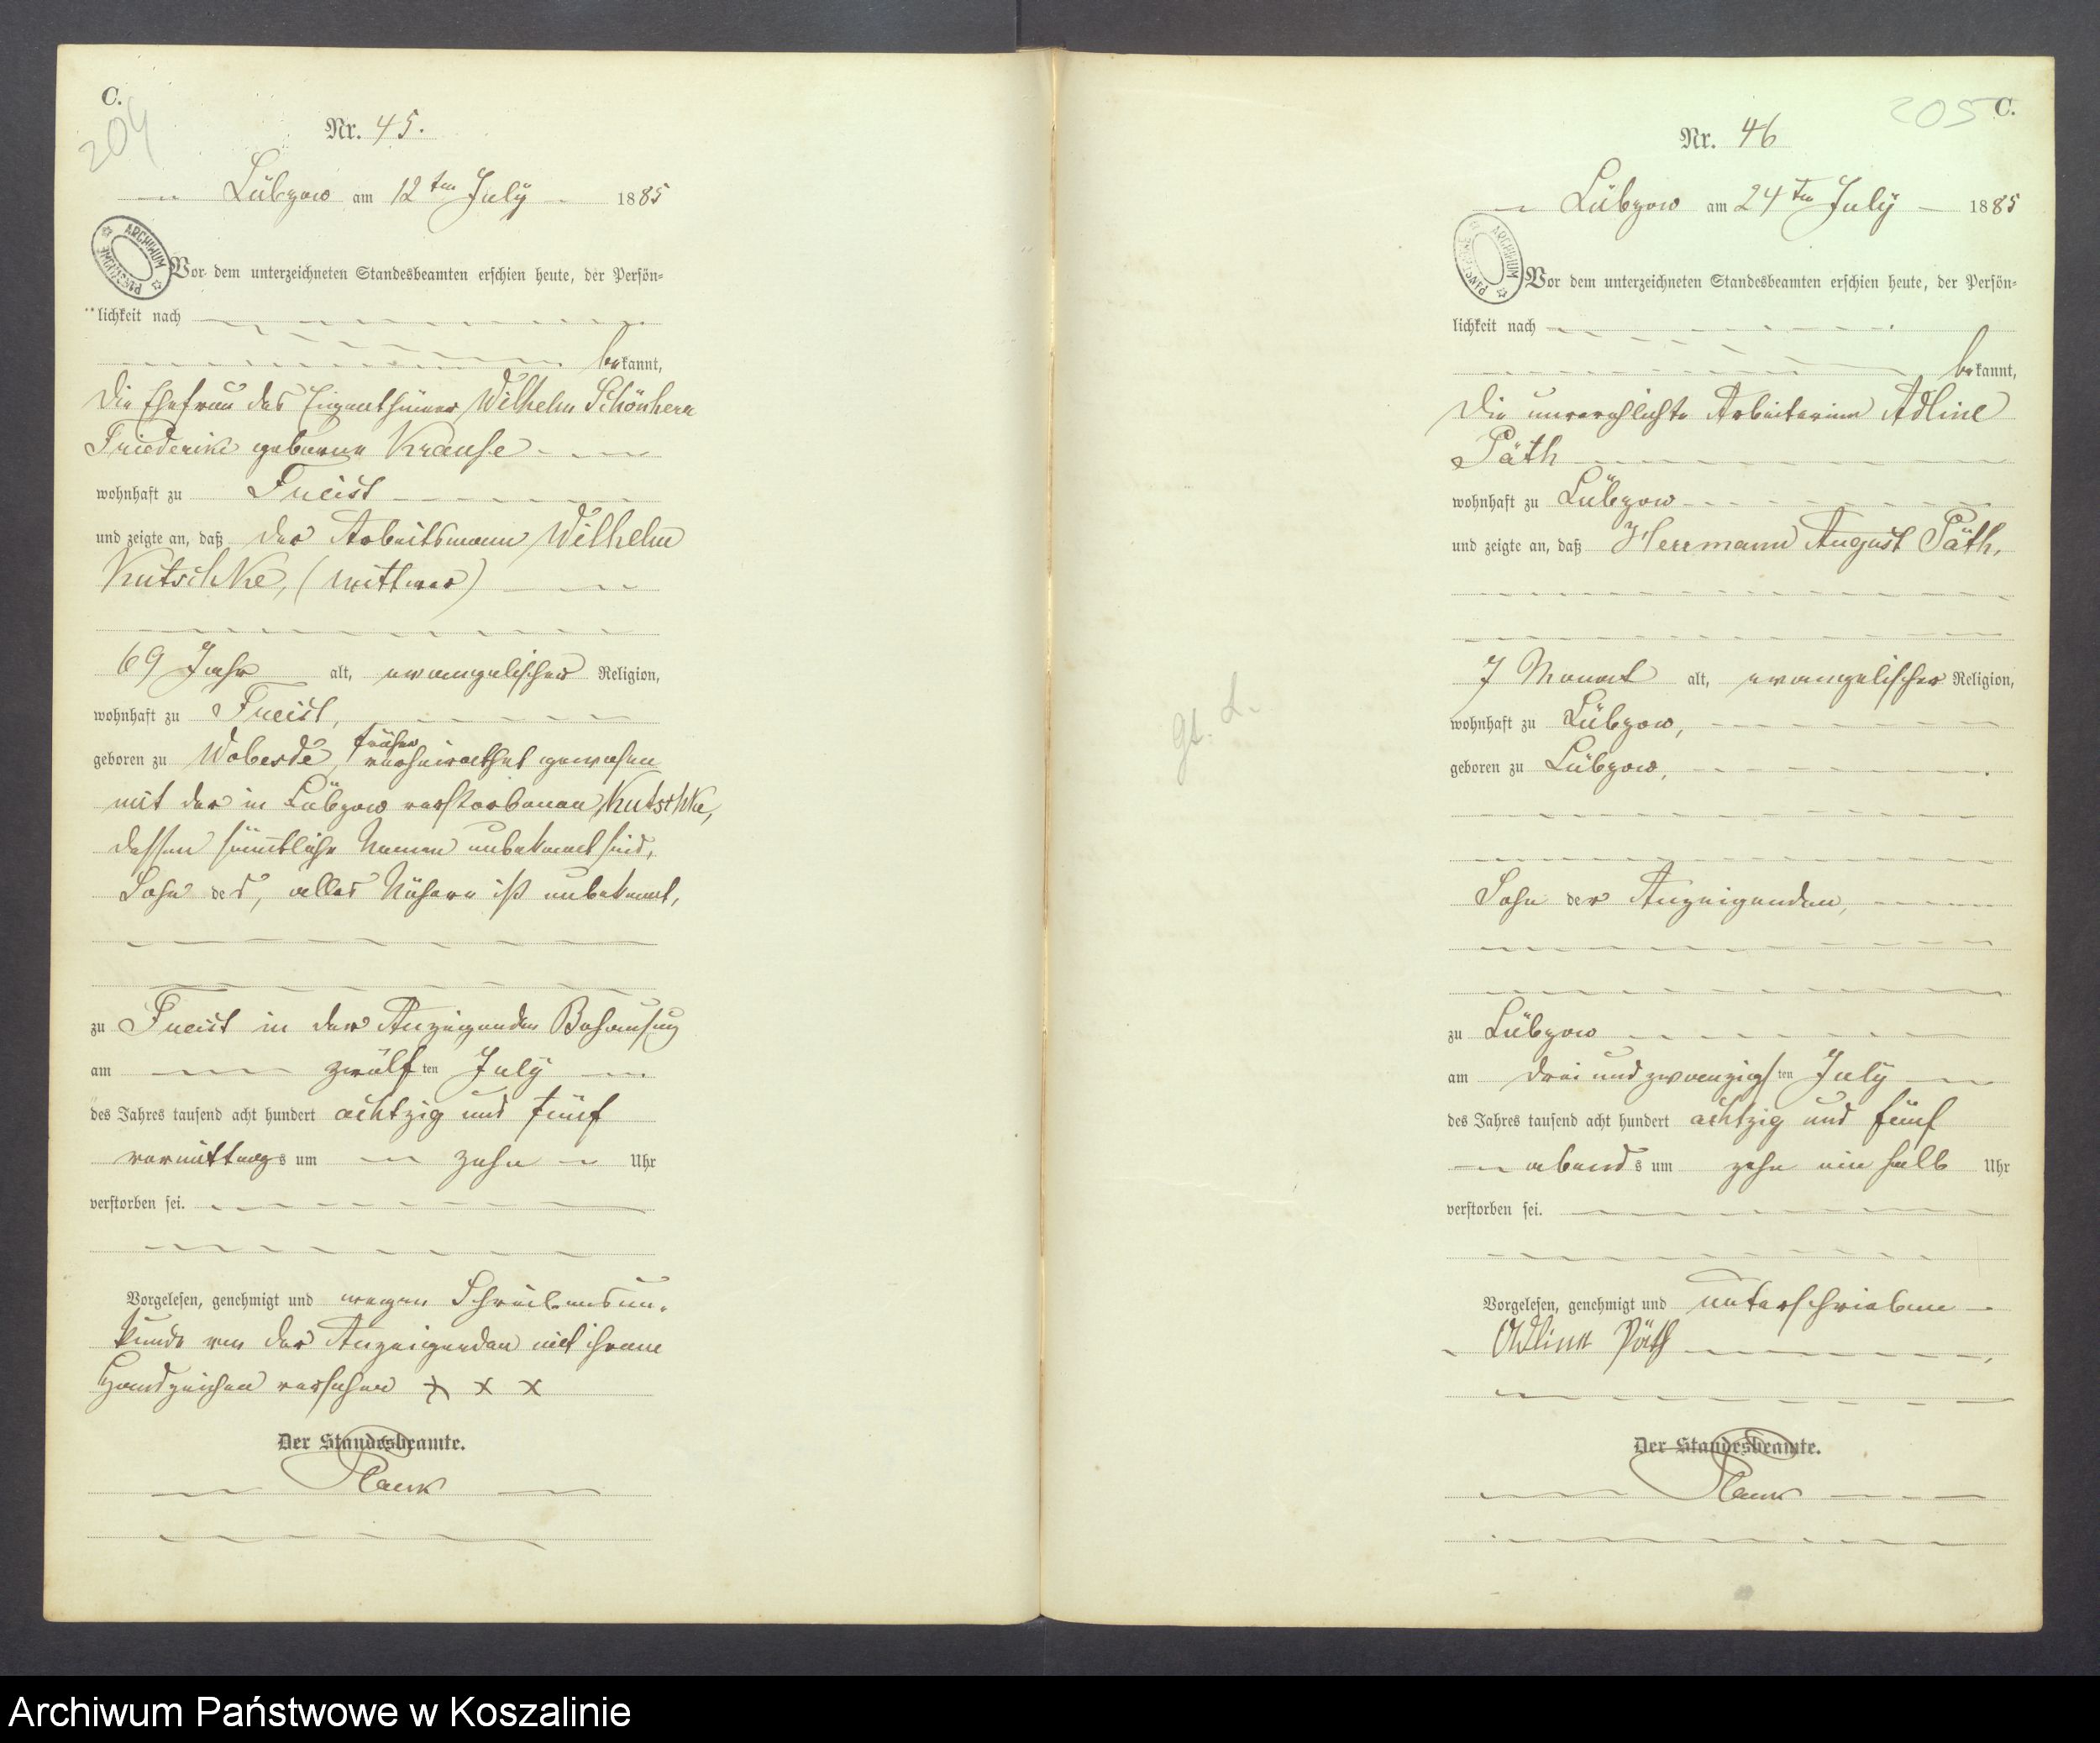 C.
204
Nr. 45.
Lübzow am 12 ten July 1885
ARCHIWUM PAŃSTWOWE
Vor dem unterzeichneten Standesbeamten erschien heute, der Persön-
lichkeit nach
bekannt,
die Ehefrau des Eigenthümer Wilhelm Schönherr
Friederike geborene Krause
wohnhaft zu Freist
und zeigte an, daß der Arbeitsmann Wilhelm
Kutschke, (Wittwer)
69 Jahr alt, evangelischer Religion,
wohnhaft zu Freist,
geboren zu Wobesde, früher verheirathet gewesen
mit der in Lübzow verstorbenen Kutschke,
dessen sämmtliche Namen unbekannt sind,
Sohn des, alles Nähere ist unbekannt,
zu Freist in der Anzeigenden Behausung
am zwölften July
des Jahres tausend acht hundert achtzig und fünf
vormittags um zehn Uhr
verstorben sei.
Vorgelesen, genehmigt und wegen Schreibensun-
kunde von der Anzeigenden mit ihrem
Handzeichen versehen x x x
Der Standesbeamte.
Planck
C.
205
Nr. 46
Lübzow am 24 ten July 1885
ARCHIWUM PAŃSTWOWE
Vor dem unterzeichneten Standesbeamten erschien heute, der Persön-
lichkeit nach
bekannt,
die unverehlichte Arbeiterinn Adline
Päth
wohnhaft zu Lübzow
und zeigte an, daß Herrmann August Päth,
7 Monat alt, evangelischer Religion,
wohnhaft zu Lübzow,
geboren zu Lübzow,
Sohn der Anzeigenden,
zu Lübzow
am drei und zwanzigsten July
des Jahres tausend acht hundert achtzig und fünf
abends um zehn ein halb Uhr
verstorben sei.
Vorgelesen, genehmigt und unterschrieben
Adline Päth
Der Standesbeamte.
Planck
gt. L.
Archiwum Państwowe w Koszalinie